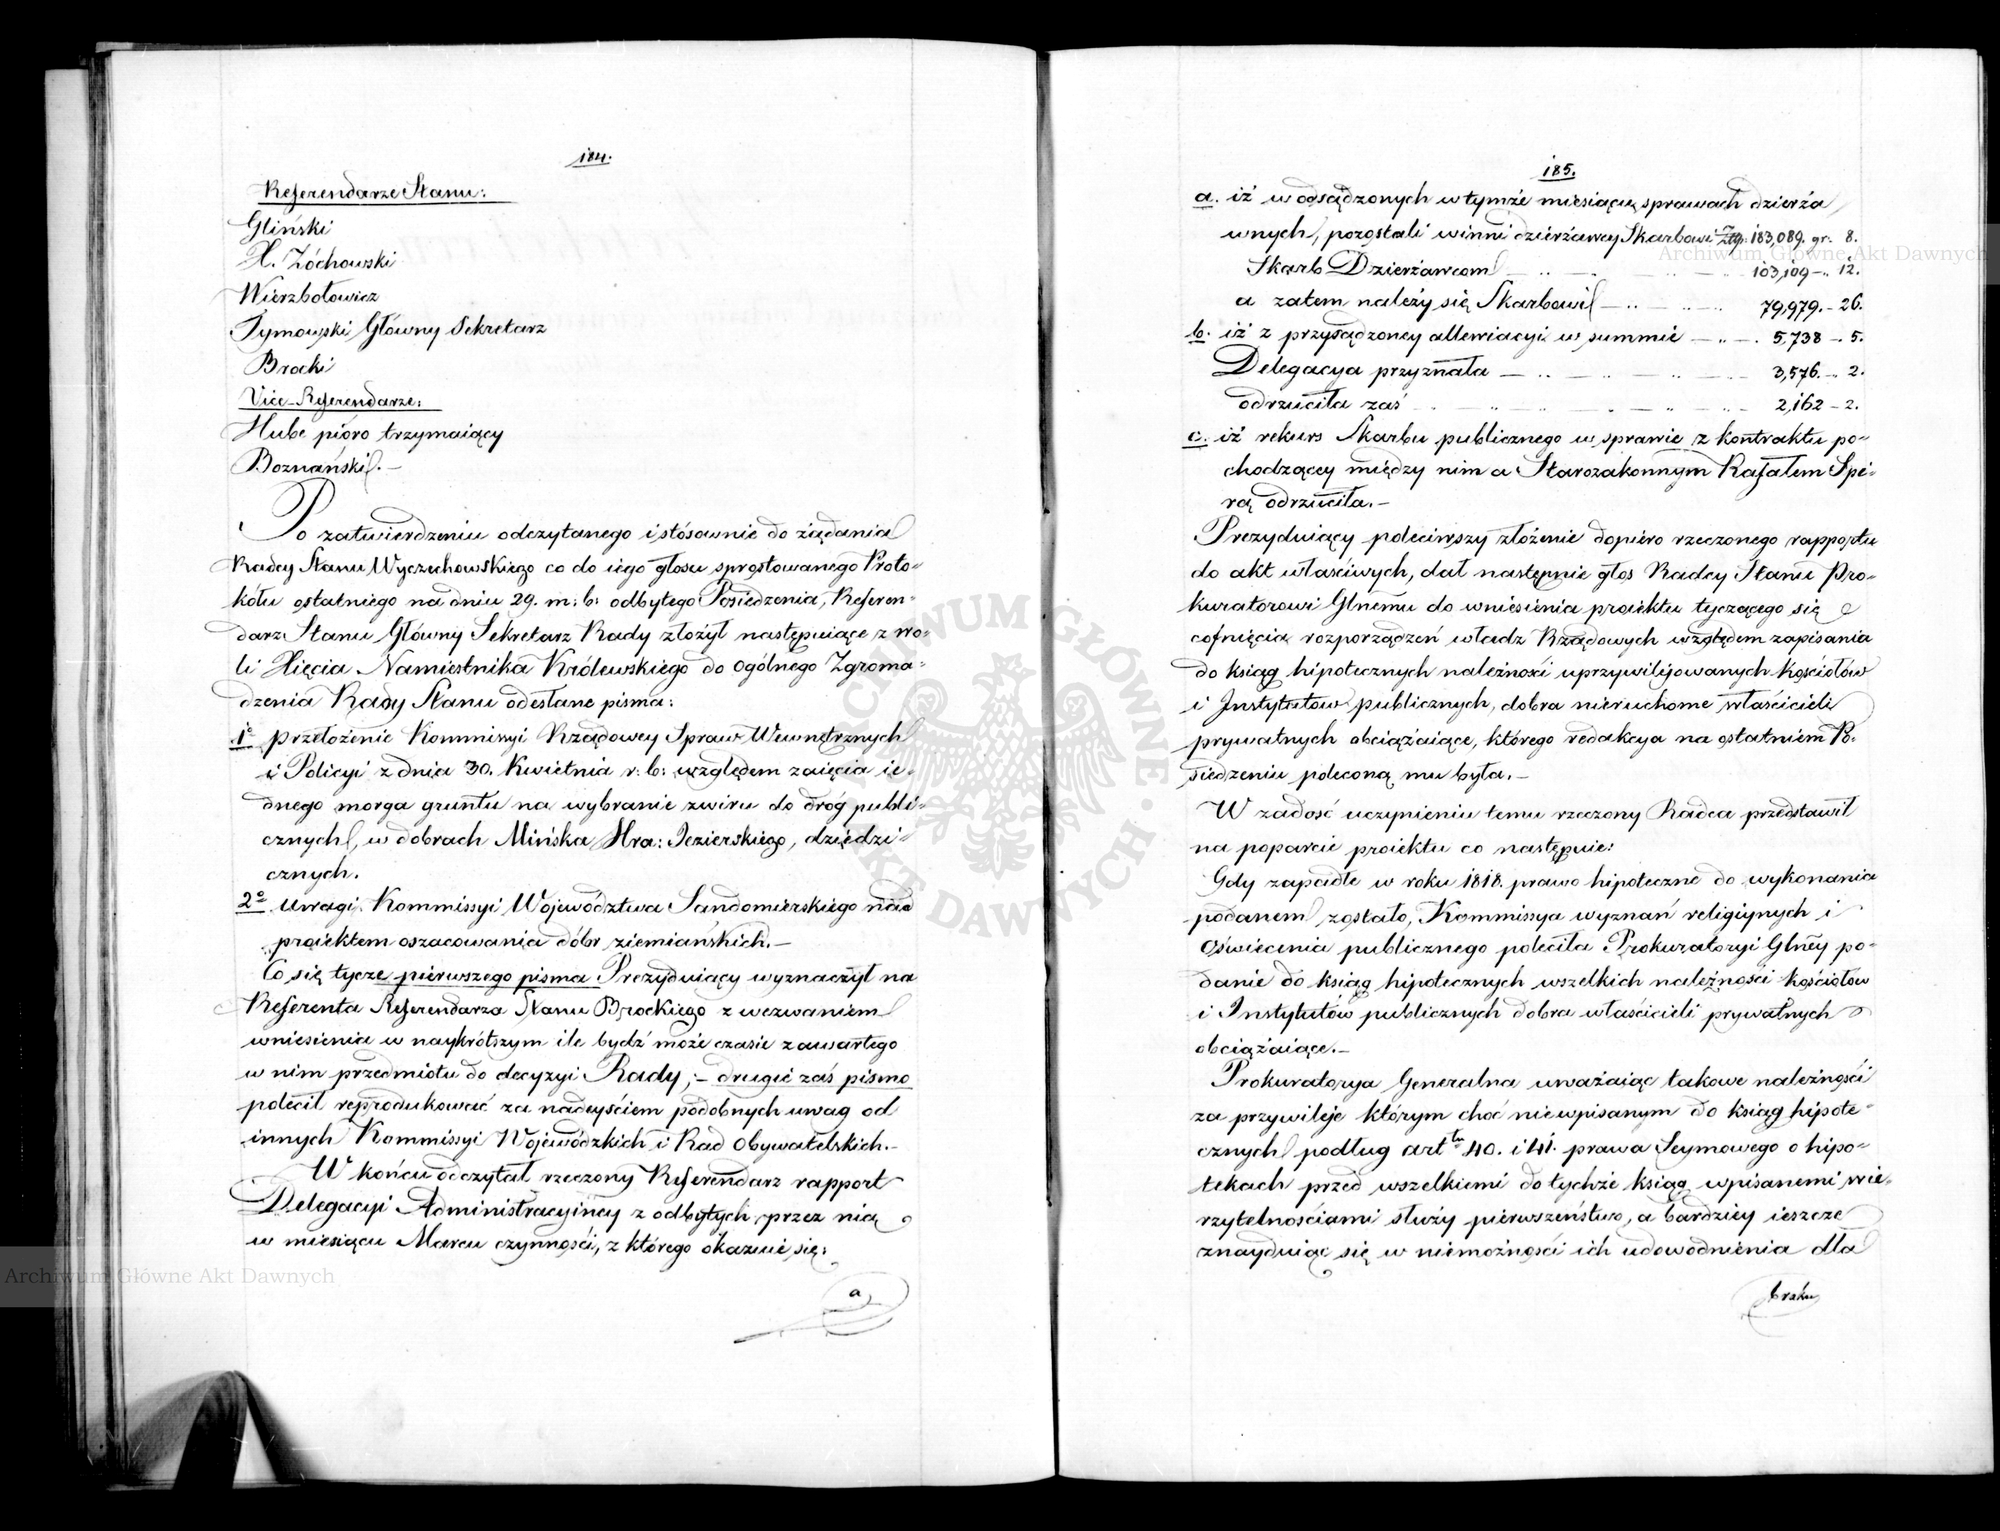 184.
Referendarze Stanu:
Gliński
X. Żóchowski
Wierzbołowicz
Tymowski Główny Sekretarz
Brocki
Vice-Referendarze:
Hube pióro trzymaiący
Boznański.-
Po zatwierdzeniu odczytanego i stósownie do żądania
Radcy Stanu Wyczechowskiego co do iego głosu sprostowanego Proto-
kółu ostatniego na dniu 29. m: b: odbytego Posiedzenia, Referen-
darz Stanu Główny Sekretarz Rady złożył następuiące z wo-
li Xięcia Namiestnika Królewskiego do Ogólnego Zgroma-
dzenia Rady Stanu odesłane pisma:
1° przełożenie Kommissyi Rządowey Spraw Wewnętrznych
i Policyi z dnia 30. Kwietnia r: b: względem zaięcia ie-
dnego morga gruntu na wybranie zwiru do dróg publi-
cznych, w dobrach Mińska Hra: Jezierskiego, dziedzi-
cznych.
2° Uwagi Kommissyi Województwa Sandomierskiego nad
proiektem oszacowania dóbr ziemiańskich.-
Co się tycze pierwszego pisma Prezyduiący wyznaczył na
Referenta Referendarza Stanu Brockiego z wezwaniem
wniesienia w naykrótszym ile bydź może czasie zawartego
w nim przedmiotu do decyzyi Rady;- drugie zaś pismo
polecił reprodukować za nadeyściem podobnych uwag od
innych Kommissyi Wojewódzkich i Rad Obywatelskich.-
W końcu odczytał rzeczony Referendarz rapport
Delegacyi Administracyiney z odbytych przez nią
w miesiącu Marcu czynności, z którego okazuie się:
a
185.
a. iż w odsądzonych w tymże miesiącu sprawach dzierża
wnych, pozostali winni dzierżawcy Skarbowi Złp: 183,089. gr: 8.
Skarb Dzierżawcom 103,109 -.. 12.
a zatem należy się Skarbowi 79,979. - 26.
b. iż z przysądzoney allewiacyi w summie 5,738 -. 5.
Delegacya przyznała 3,576. -. 2.
odrzuciła zaś 2,162 - 2.
c. iż rekurs Skarbu publicznego w sprawie z kontraktu po-
chodzącey między nim a Starozakonnym Rafałem Spi-
rą odrzuciła.-
Prezyduiący poleciwszy złożenie dopiero rzeczonego rapportu
do akt właściwych, dał następnie głos Radcy Stanu Pro-
kuratorowi Glnemu do wniesienia proiektu tyczącego się
cofnięcia rozporządzeń władz Rządowych względem zapisania
do ksiąg hipotecznych należności uprzywilijowanych kościołów
i Instytutów publicznych, dobra nieruchome właścicieli
prywatnych obciążaiące, którego redakcya na ostatniem Po-
siedzeniu poleconą mu była.-
W zadość uczynieniu temu rzeczony Radca przedstawił
na poparcie proiektu co następuie:
Gdy zapadłe w roku 1818. prawo hipoteczne do wykonania
podanem zostało, Kommissya wyznań religiynych i
Oświecenia publicznego poleciła Prokuratoryi Glney po-
danie do ksiąg hipotecznych wszelkich należności kościołów
i Instytutów publicznych dobra właścicieli prywatnych
obciążaiące.-
Prokuratorya Generalna uważaiąc takowe należności
za przywileje którym choć niewpisanym do ksiąg hipote-
cznych podług art łu 40. i 41. prawa Seymowego o hipo-
tekach przed wszelkiemi do tychże ksiąg wpisanemi wie-
rzytelnościami służy pierwszeństwo, a bardziey ieszcze
znayduiąc się w niemożności ich udowodnienia dla
braku
Archiwum Główne Akt Dawnych
Archiwum Główne Akt Dawnych
ARCHIWUM GŁÓWNE · AKT DAWNYCH ·